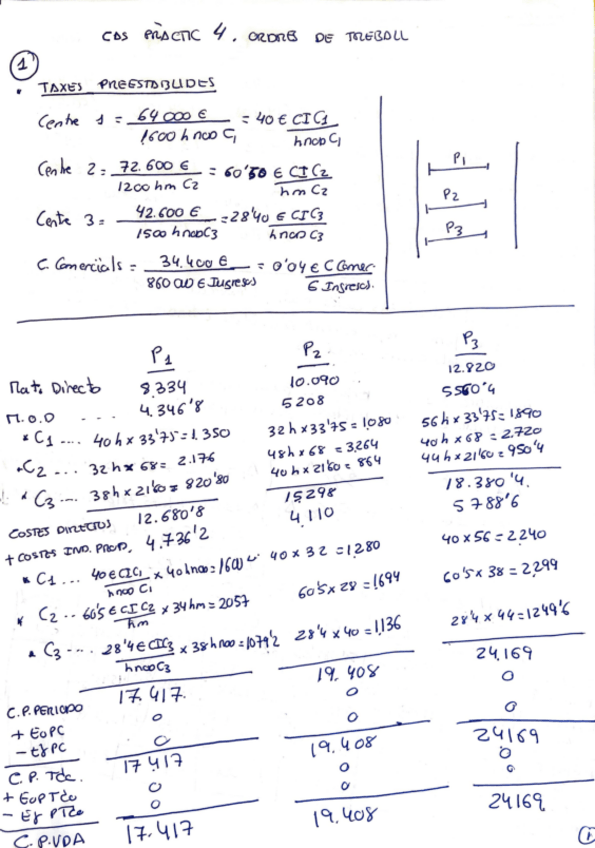 CAS PRÀCTIC 4. ORDRES DE TREBALL
1
• TAXES PREESTABLIDES
Centre 1 = 64000 € / 1600 h mod C1 = 40 € CIC1 / hmod C1
Centre 2 = 72.600 € / 1200 hm C2 = 60'50 € CIC2 / hm C2
Centre 3 = 42.600 € / 1500 hmod C3 = 28'40 € CIC3 / hmod C3
C. Comercials = 34.400 € / 860000 € Ingresos = 0'04 € C Comer. / € Ingresos.
P1
P2
P3
P1 P2 P3
Mat. Directo 8.334 10.090 12.820
M.O.D ... 4.346'8 5208 5560'4
* C1 .... 40h x 33'75 = 1.350 32h x 33'75 = 1080 56h x 33'75 = 1890
* C2 ... 32h x 68 = 2.176 48h x 68 = 3.264 40h x 68 = 2.720
* C3 .... 38h x 21'60 = 820'80 40h x 21'60 = 864 44h x 21'60 = 950'4
COSTES DIRECTOS 12.680'8 15298 18.380'4
+ COSTES IND. PROD. 4.736'2 4.110 5788'6
* C1 ... 40 € CIC1 / hmod C1 x 40 hmod = 1600 40 x 32 = 1280 40 x 56 = 2240
* C2 .. 60'5 € CIC2 / hm x 34 hm = 2057 60'5 x 28 = 1694 60'5 x 38 = 2299
* C3 .... 28'4 € CIC3 / hmod C3 x 38 hmod = 1079'2 28'4 x 40 = 1136 28'4 x 44 = 1249'6
C.P. PERIODO 17.417 19.408 24.169
+ EoPC 0 0 0
- EfPC 0 0 0
C.P. Tdo. 17417 19.408 24169
+ EoPTdo 0 0 0
- Ef PTdo 0 0 0
C.P.VDA 17.417 19.408 24169
1